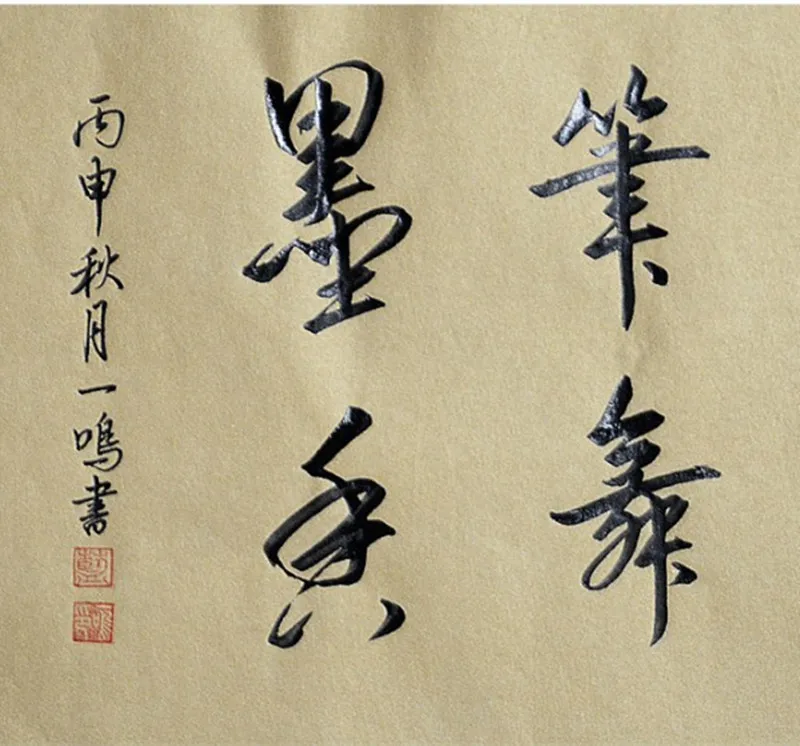 筆舞
墨香
丙申秋月一鳴書